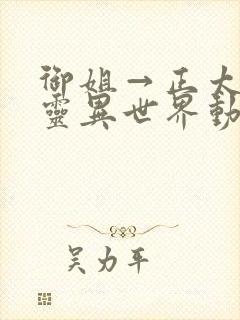 御姐→正太
靈異世界動
吴力平